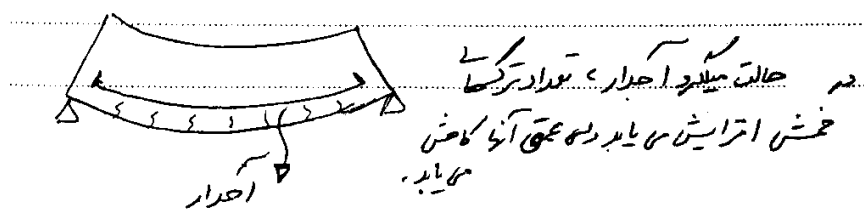 در حالت میلگرد آجدار، تعداد ترکهای
خمشی افزایش می یابد ولی عمق آنها کاهش
می یابد.
آجدار